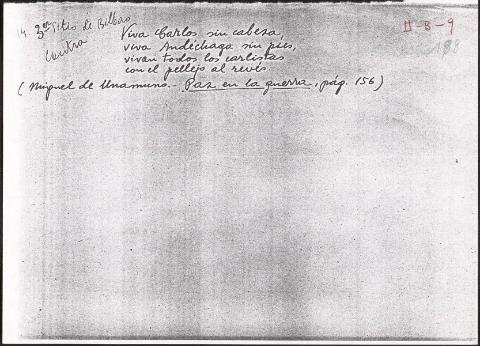 14. 3er Sitio de Bilbao
Contra
II-B-9
188
Viva Carlos sin cabeza,
viva Andéchaga sin pies,
vivan todos los carlistas
con el pellejo al revés
(Miguel de Unamuno.- Paz en la guerra, pág. 156)